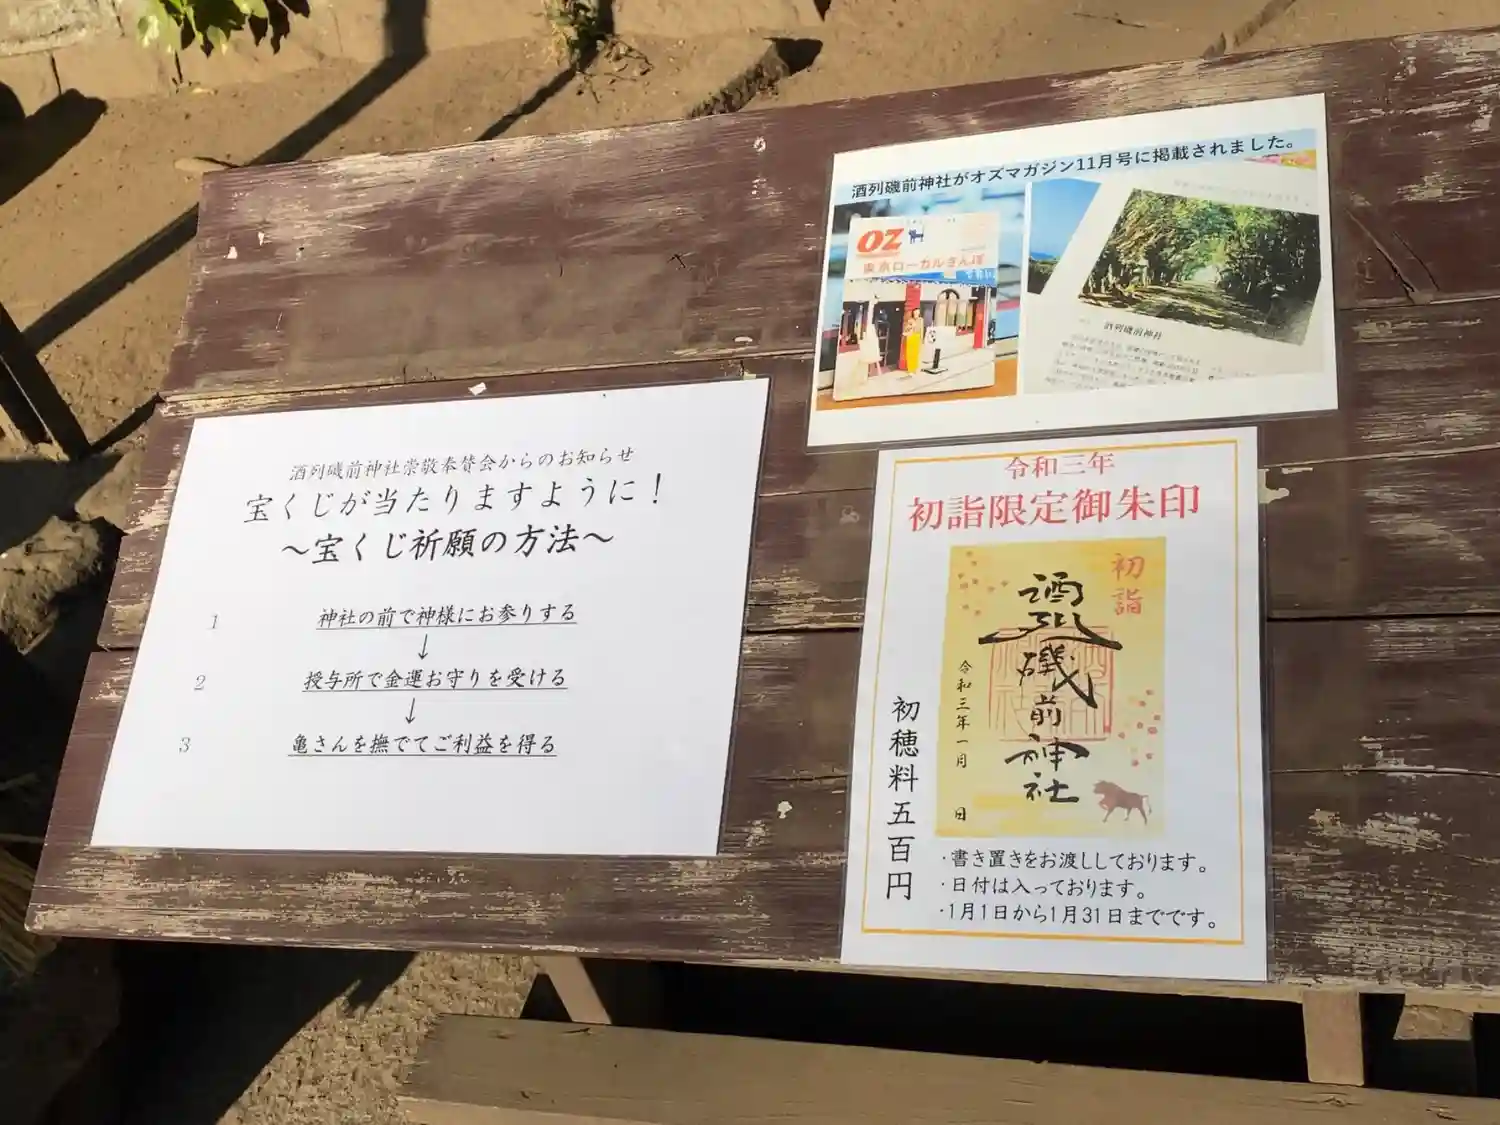 酒列磯前神社崇敬奉賛会からのお知らせ
宝くじが当たりますように！
～宝くじ祈願の方法～
1 神社の前で神様にお参りする
↓
2 授与所で金運お守りを受ける
↓
3 亀さんを撫でてご利益を得る
酒列磯前神社がオズマガジン11月号に掲載されました。
OZ
東京ローカルさんぽ
酒列磯前神社
令和三年
初詣限定御朱印
初詣
酒列磯前神社
令和三年一月 日
初穂料五百円
・書き置きをお渡ししております。
・日付は入っております。
・1月1日から1月31日までです。